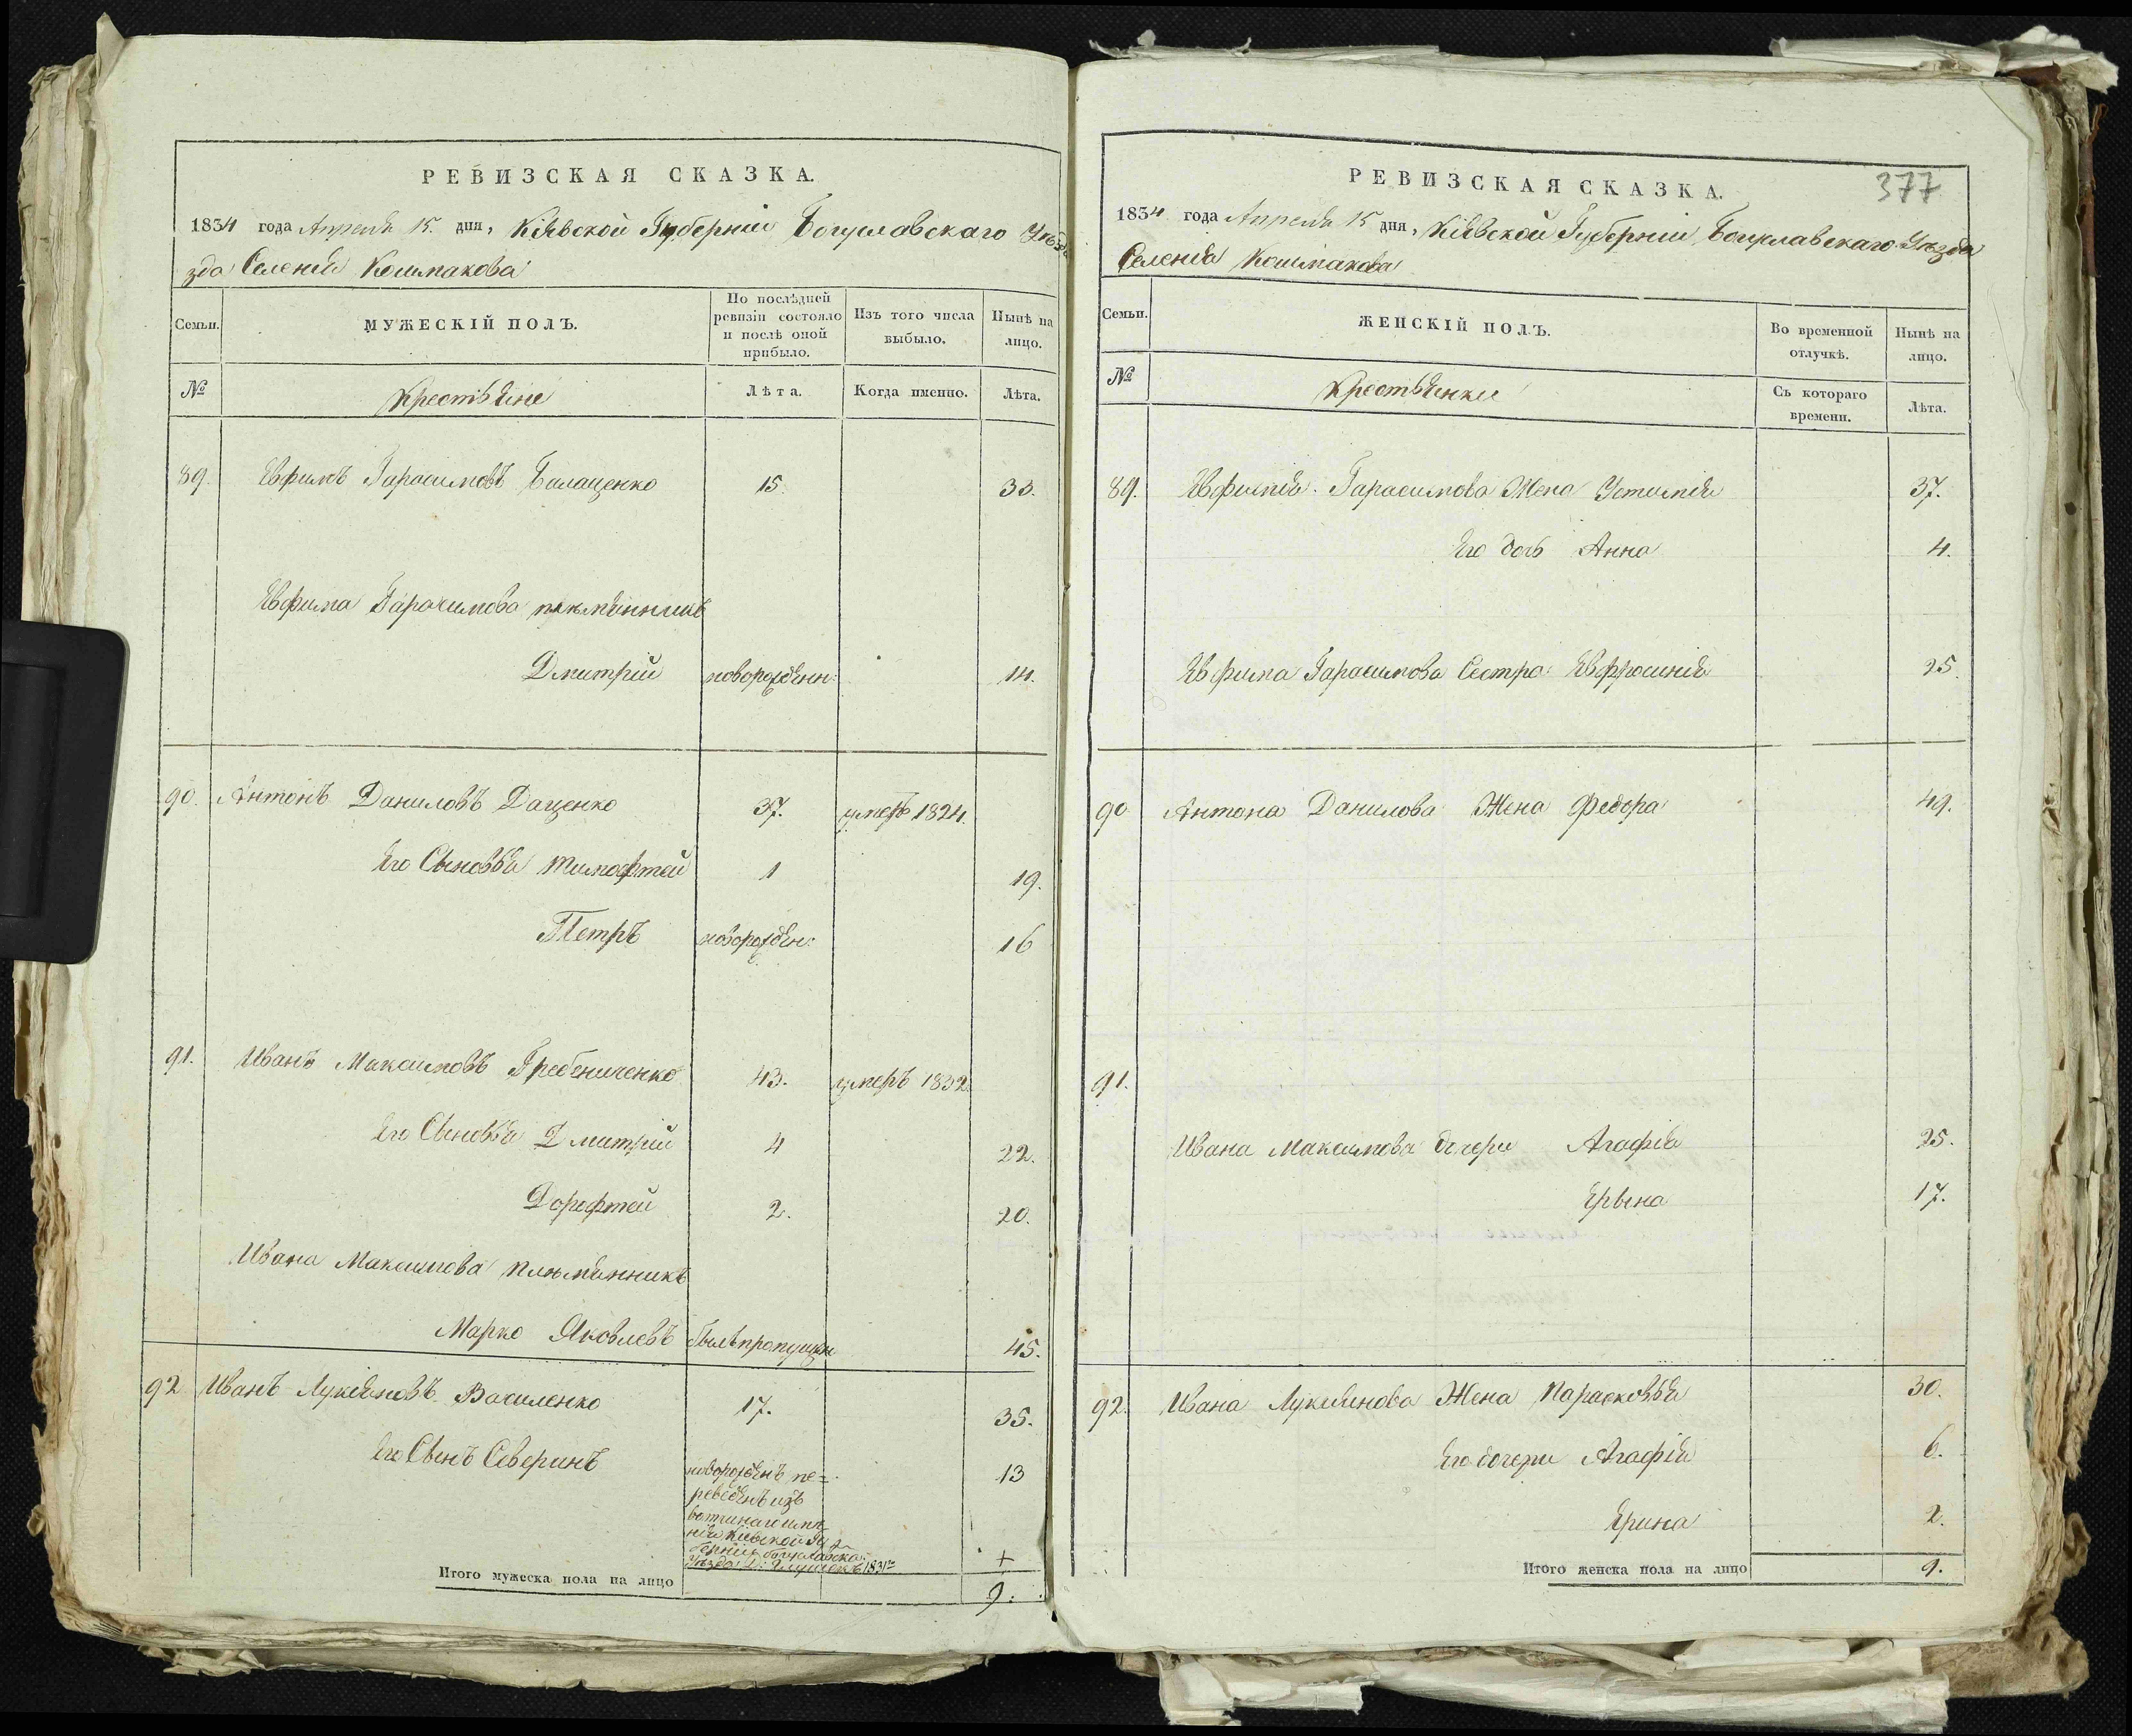 РЕВИЗСКАЯ СКАЗКА.
1834 года Апреля 15. дня, Кіевской Губерніи Богуславскаго Уѣз
зда Селенія Кошмакова
Семьи.
МУЖЕСКІЙ ПОЛЪ.
По послѣдней ревизіи состояло и послѣ оной прибыло.
Изъ того числа выбыло.
Нынѣ на лицо.
№
Крестьяне
Лѣта.
Когда именно.
Лѣта.
89. Евфимъ Гарасимовъ Балаценко 15. 33.
Евфима Гарасимова племянникъ
Дмитрій новорожденн: 14.
90. Антонъ Даниловъ Даценко 37. умеръ 1824.
Его Сыновья Тимофтей 1 19.
Петръ новорожден: 16
91. Иванъ Максимовъ Гребениченко 43. умеръ 1832.
Его Сыновья Дмитрій 4 22.
Дорофтей 2. 20.
Ивана Максимова племянникъ
Марко Яковлевъ былъ пропущен 45.
92 Иванъ Лукіяновъ Василенко 17. 35.
Его Сынъ Северинъ новорожденъ пе= 13
реведенъ изъ
имѣ
нія Кіевской Гу
берніи Богуславска:
Уѣзда 1831го +
Итого мужеска пола на лицо 9.
377
РЕВИЗСКАЯ СКАЗКА.
1834 года Апреля 15 дня, Кіевской Губерніи Богуславскаго Уѣзда
Селенія Кошмакова
Семьи.
ЖЕНСКІЙ ПОЛЪ.
Во временной отлучкѣ.
Нынѣ на лицо.
№
Крестьянки
Съ котораго времени.
Лѣта.
89. Гарасимова Жена Устимія 37.
Его дочь Анна 4.
Евфима Гарасимова Сестра Евфросинія 25.
90 Антона Данилова Жена Федора 49.
91.
Ивана Максимова дочери Агафія 25.
Ярына 17.
92. Ивана Лукіянова Жена Парасковья 30.
Его дочери Агафія 6.
Ярина 2.
Итого женска пола на лицо 9.